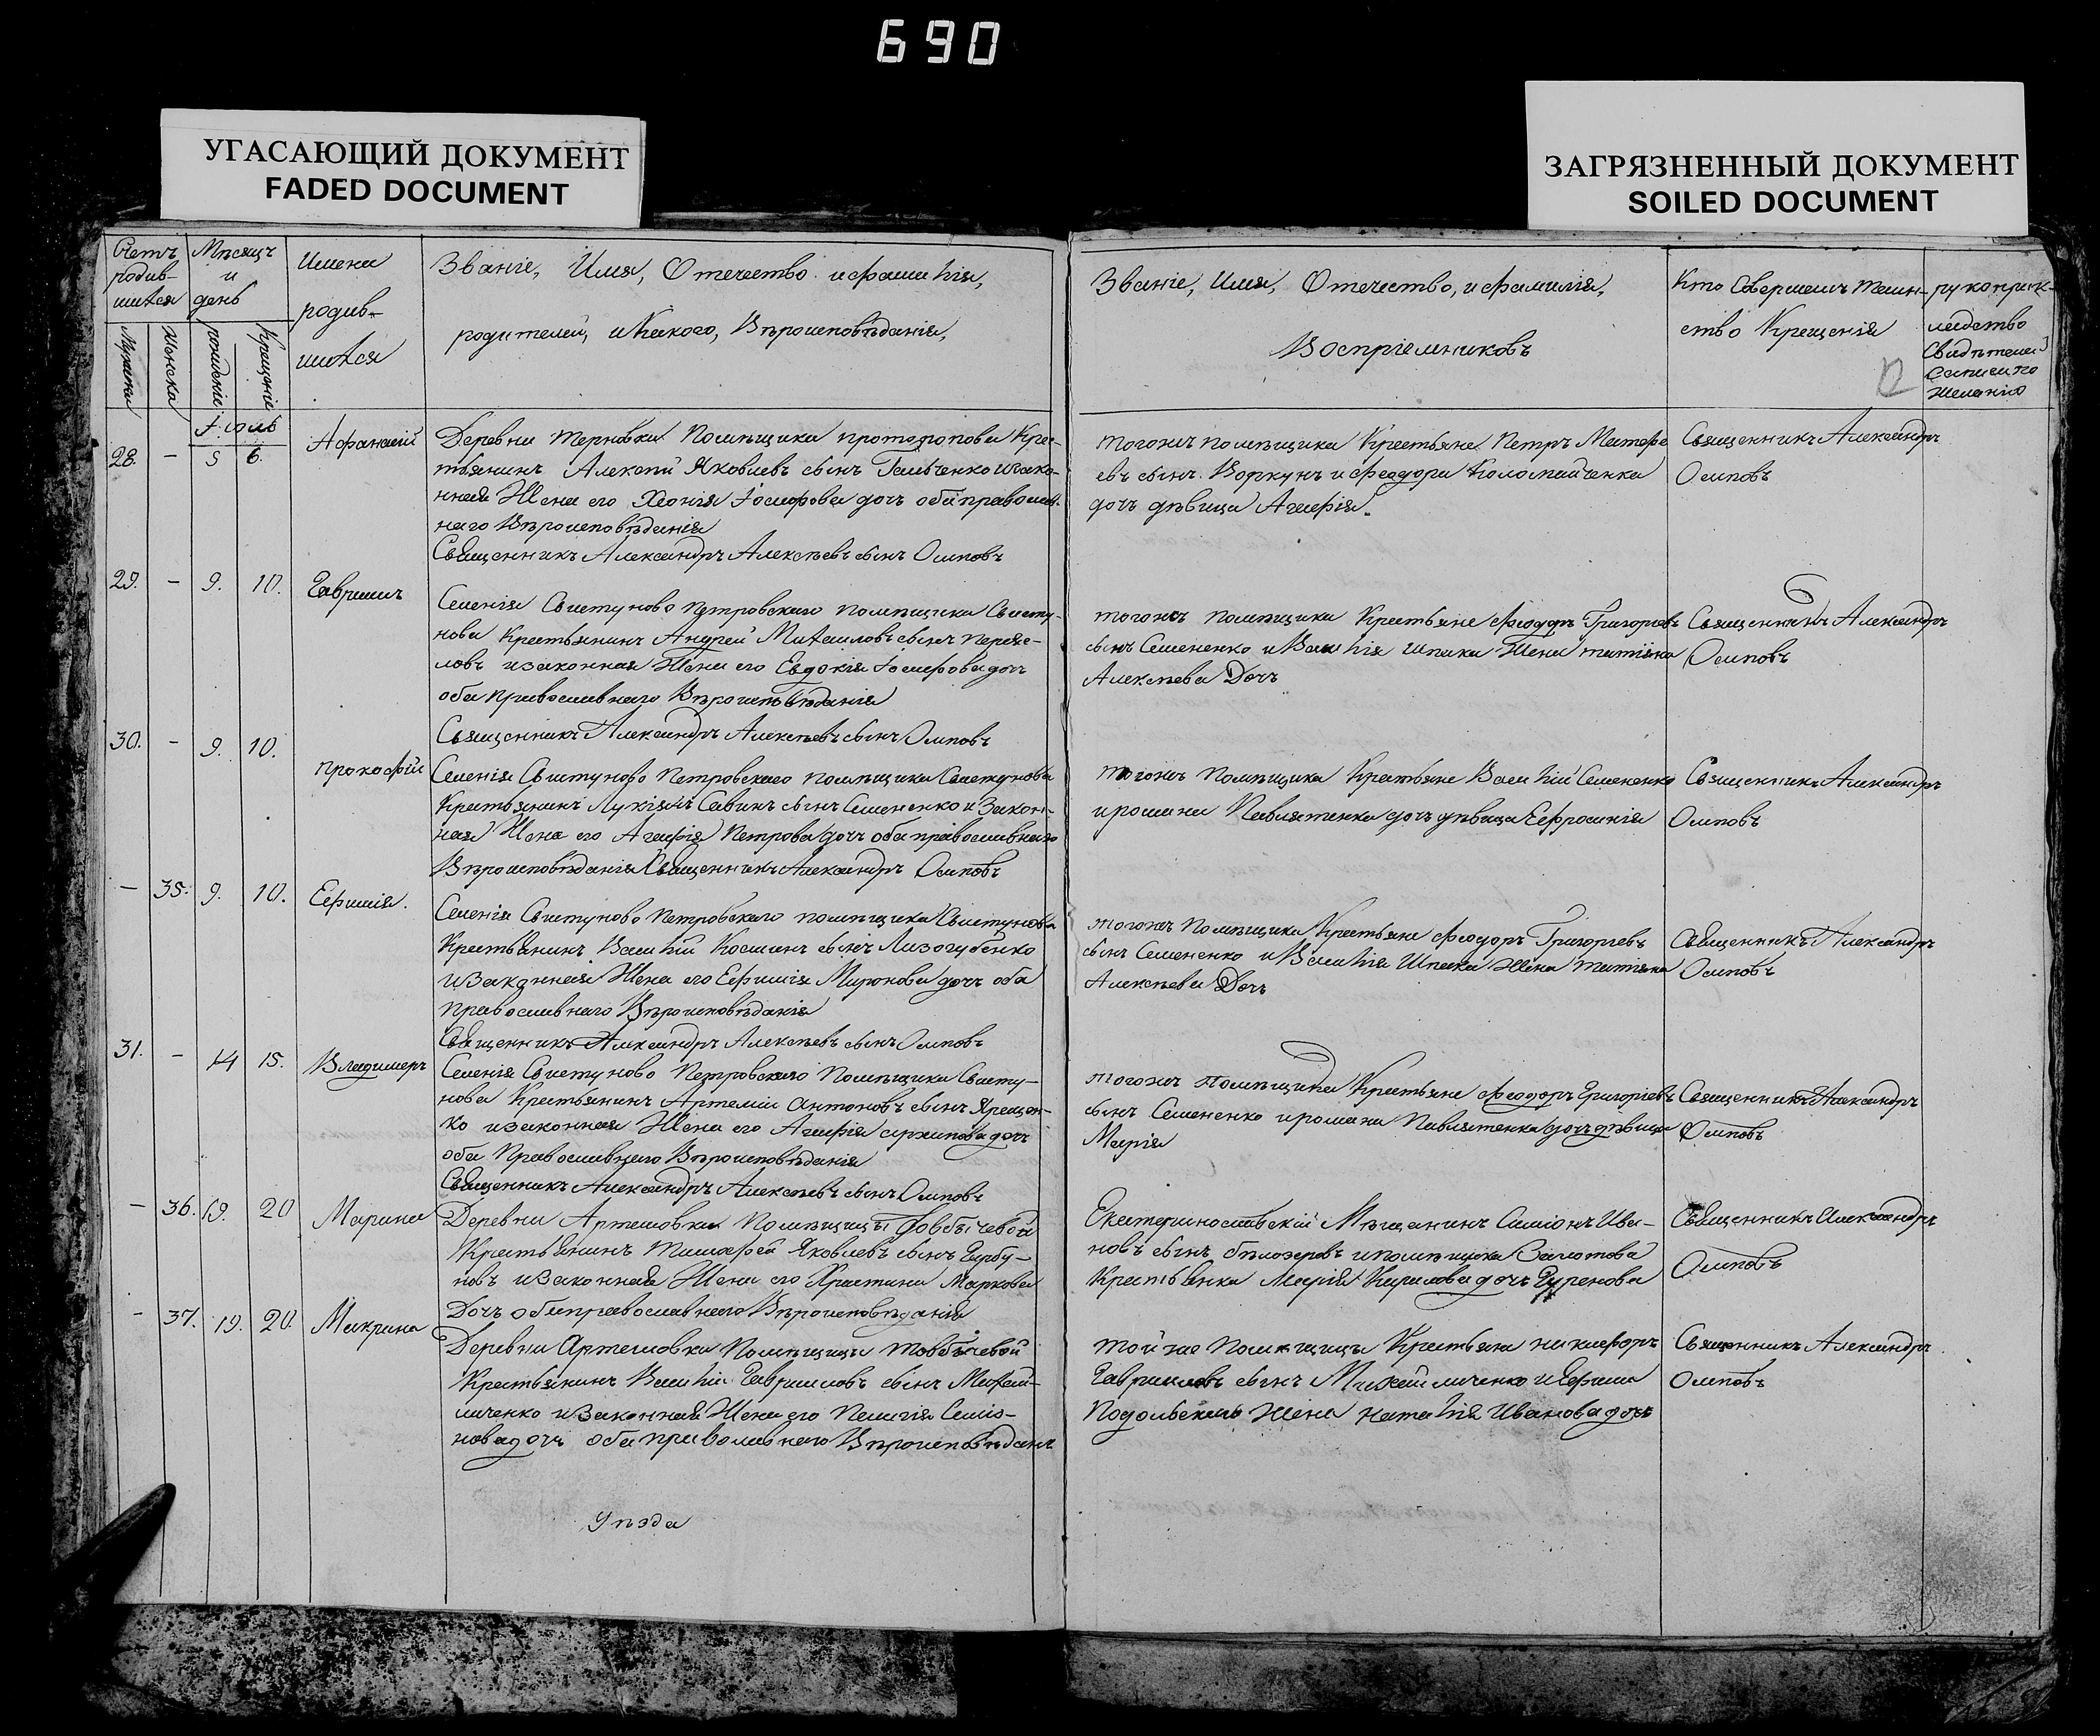 690
УГАСАЮЩИЙ ДОКУМЕНТ
FADED DOCUMENT
ЗАГРЯЗНЕННЫЙ ДОКУМЕНТ
SOILED DOCUMENT
Счетъ родив-шихся
Мѣсяцъ и день
Имена родив-шихся
Званіе, Имя, Отечество и фамилія,
родителей, и Какого, Вѣроисповѣданія,
Мужска
Женска
рожденіе
Крещеніе
Званіе, Имя, Отечество, и фамилія,
Воспріемниковъ
Кто Совершилъ Таин-
ство Крещенія
рукоприк-
ладство
Свидѣтелей
Записи по
желанію
Іюль
28. - 5 6. Афанасій
Деревни Терновки Помѣщика протопопова Крес-
тьянинъ Алексѣй Яковлевъ сынъ Гальченко и зако-
нная Жена его Хіонія Іосифова дочь оба православ-
наго Вѣроисповѣданія
Священникъ Александръ Алексѣевъ сынъ Осиповъ
тогожъ помѣщика Крестьяне Петръ Матфе
евъ сынъ Воркунъ и феодора Коломайченка
дочь дѣвица Агафія.
Священникъ Александръ
Осиповъ
29. - 9. 10. Гавриилъ
Селенія Свистуново Петровскаго помѣщика Свисту-
нова Крестьянинъ Андрей Михаиловъ сынъ переяс-
ловъ и законная Жена его Евдокія Іосифова дочь
оба Православнаго Вѣроисповѣданія
Священникъ Александръ Алексѣевъ сынъ Осиповъ
тогожъ помѣщика Крестьяне феодоръ Григорьевъ
сынъ Семененко и Василія Шпака Жена татіяна
Алексѣева Дочь
Священникъ Александръ
Осиповъ
30. - 9. 10. прокофій
Селенія Свистуново Петровскаго помѣщика Свистунова
Крестьянинъ Лукіянъ Савинъ сынъ Семененко и Закон-
ная Жена его Агафія Петрова дочь оба православнаго
Вѣроисповѣданія Священникъ Александръ Осиповъ
тогожъ Помѣщика Крестьяне Василій Семененко
и романа Павлятенка дочь дѣвица Ефросинія
Священникъ Александръ
Осиповъ
- 35. 9. 10. Ефимія.
Селенія Свистуново Петровскаго помѣщика Свистунова
Крестьянинъ Василій Косминъ сынъ Лизогубенко
и Законная Жена его Ефимія Миронова дочь оба
православнаго Вѣроисповѣданія
Священникъ Александръ Алексѣевъ сынъ Осиповъ
тогожъ Помѣщика Крестьяне феодоръ Григорьевъ
сынъ Семененко и Василія Шпака Жена татіяна
Алексѣева Дочь
Священникъ Александръ
Осиповъ
31. - 14 15. Владимеръ
Селенія Свистуново Петровскаго Помѣщика Свисту-
нова Крестьянинъ Артемій антоновъ сынъ Ярещен-
ко и законная Жена его Агафія архипова дочь
оба Православнаго Вѣроисповѣданія
Священникъ Александръ Алексѣевъ сынъ Осиповъ
тогожъ помѣщика Крестьяне феодоръ Григоріевъ
сынъ Семененко и романа Павлятенка дочь дѣвица
Марія
Священникъ Александръ
Осиповъ
- 36. 19. 20 Марина
Деревни Артемовки Помѣщицы
Крестьянинъ Тимофей Яковлевъ сынъ Гарбу-
новъ и Законная Жена его Христина Маркова
Дочь оба православнаго Вѣроисповѣданія
Екатеринославскій Мѣщанинъ Симіонъ Ива-
новъ сынъ бѣлозеровъ и помѣщика Залотова
Крестьянка Марія Кирилова дочь Гуренова
Священникъ Александръ
Осиповъ
- 37. 19. 20. Макрина
Деревни Артемовки Помѣщицы товбичевой
Крестьянинъ Василій Гавриловъ сынъ Михай-
личенко и Законная Жена его Пелагія Симіо-
нова дочь оба православнаго Вѣроисповѣдані
тойже Помѣщицы Крестьяне никифоръ
Гавриловъ сынъ Михайличенко и Ефима
Подольскаго Жена Наталія Иванова дочь
Священникъ Александръ
Осиповъ
Уѣзда